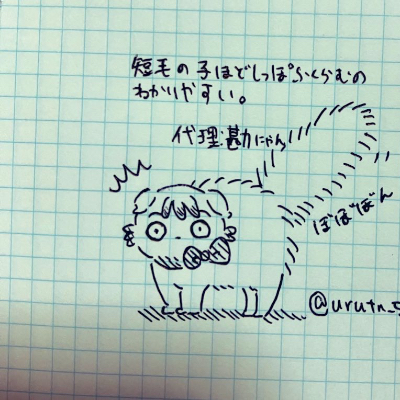 短毛の子ほどしっぽふくらむの
わかりやすい。
代理:勘にゃん
ぼぼぼん
@urutn_